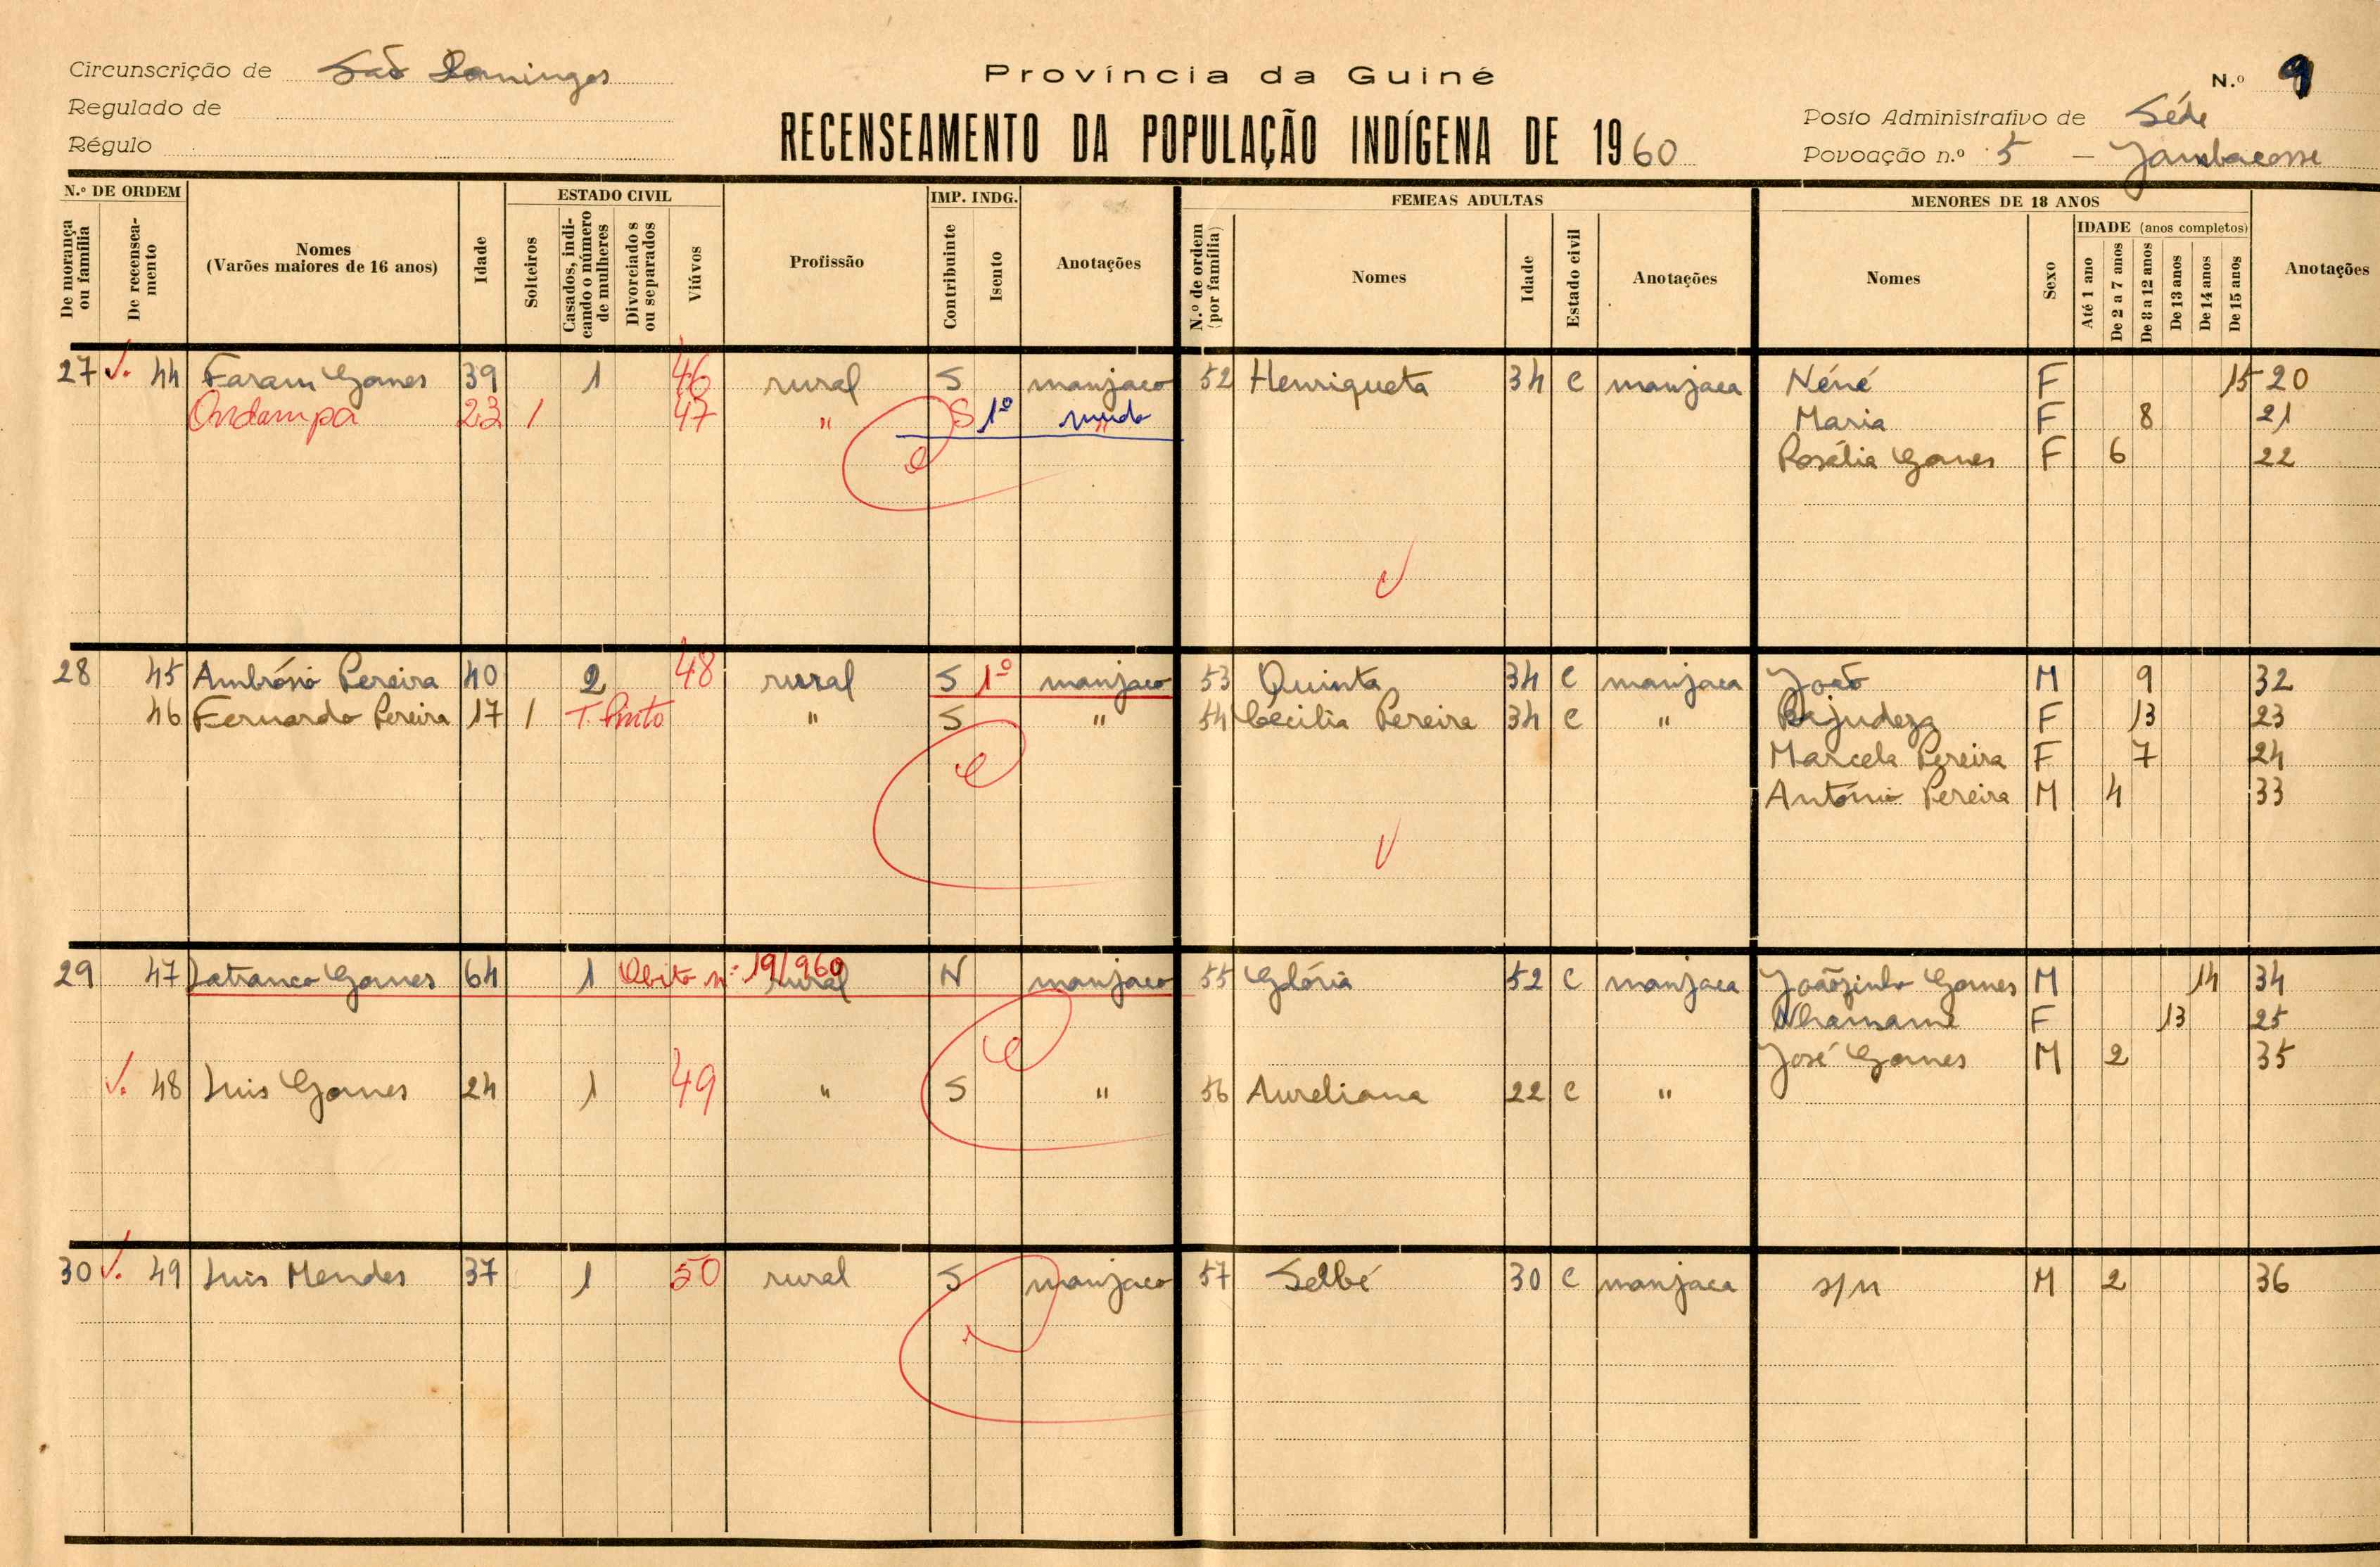 Circunscrição de São Domingos
Regulado de
Régulo
Província da Guiné
RECENSEAMENTO DA POPULAÇÃO INDÍGENA DE 1960
N.º 9
Posto Administrativo de Séde
Povoação n.º 5 — Jambacosse
N.º DE ORDEM
De morança ou família
De recenseamento
Nomes
(Varões maiores de 16 anos)
Idade
ESTADO CIVIL
Solteiros
Casados, indicando o número de mulheres
Divorciados ou separados
Viúvos
Profissão
IMP. INDG.
Contribuinte
Isento
Anotações
FEMEAS ADULTAS
N.º de ordem (por família)
Nomes
Idade
Estado civil
Anotações
MENORES DE 18 ANOS
Nomes
Sexo
IDADE (anos completos)
Até 1 ano
De 2 a 7 anos
De 8 a 12 anos
De 13 anos
De 14 anos
De 15 anos
Anotações
27 44 Faram Gomes 39 1 46 rural S manjaco 52 Henriqueta 34 C manjaca Néné F 15 20
Ondampa 23 1 47 " S 1º mudo Maria F 8 21
Rosália Gomes F 6 22
28 45 Ambrósio Pereira 40 2 48 rural S 1º manjaco 53 Quinta 34 C manjaca João M 9 32
46 Fernando Pereira 17 1 T. Pinto " S " 54 Cecilia Pereira 34 C " Bajudeza F 13 23
Marcela Pereira F 7 24
António Pereira M 4 33
29 47 Latranco Gomes 64 1 Obito nº 19/960 rural N manjaco 55 Glória 52 C manjaca Joãozinho Gomes M 14 34
F 13 25
José Gomes M 2 35
48 Luis Gomes 24 1 49 " S " 56 Aureliana 22 C "
30 49 Luis Mendes 37 1 50 rural S manjaco 57 Selbé 30 C manjaca s/n M 2 36